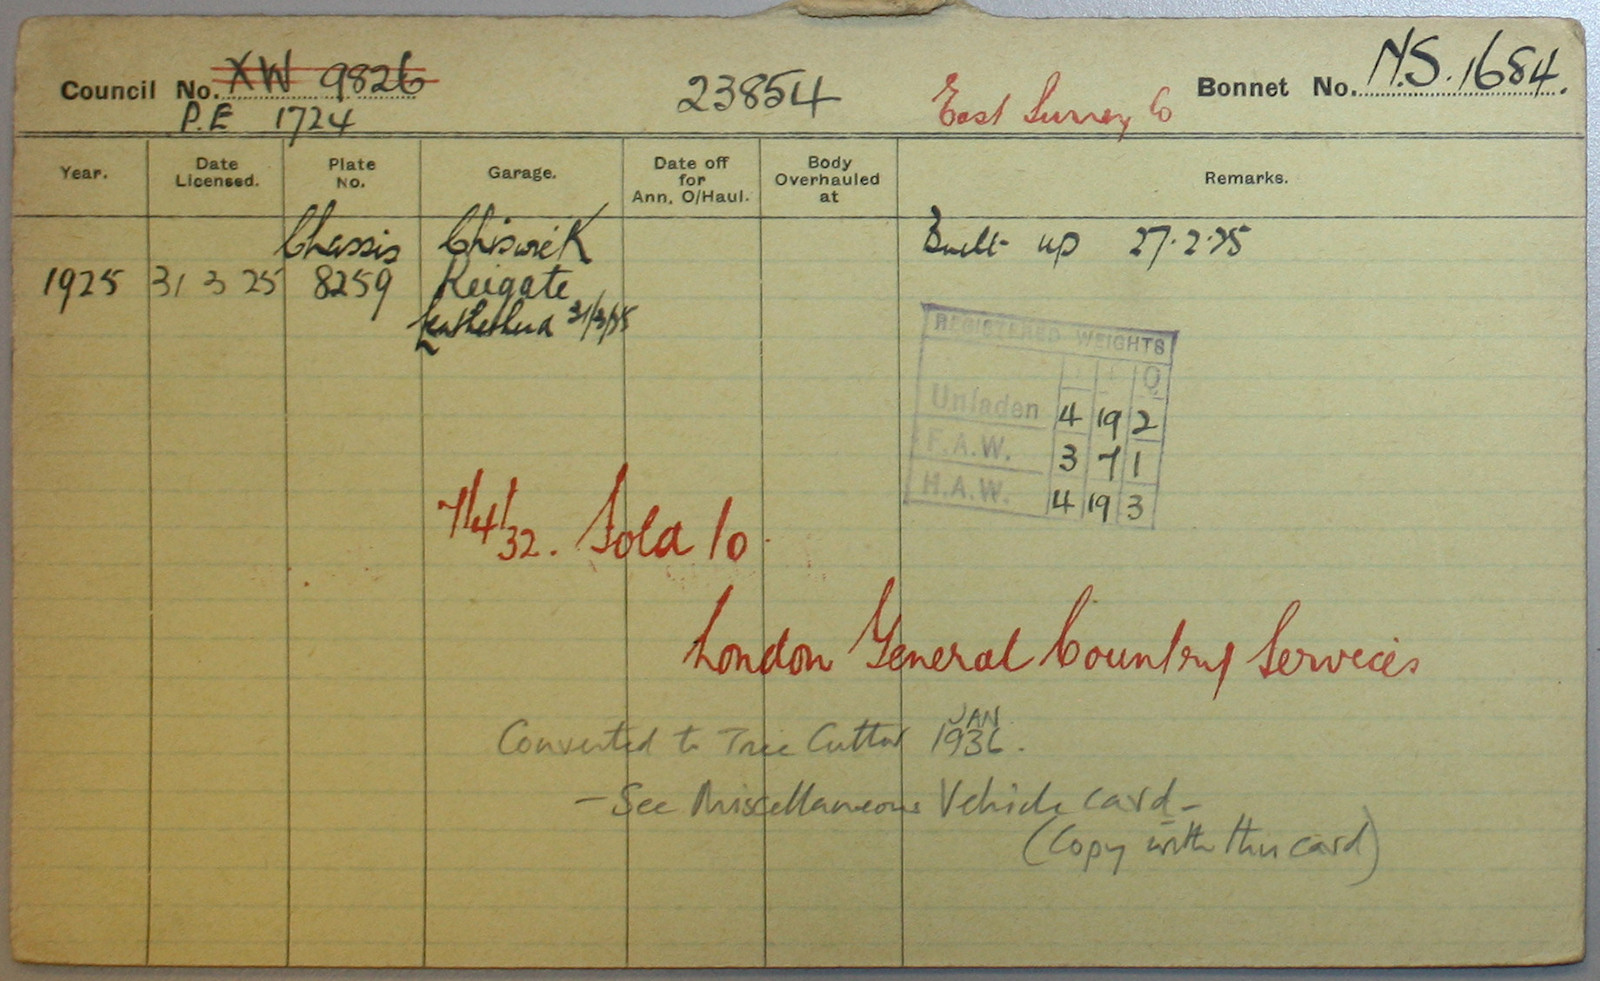 Council No. XW 9826 23854 East Surrey Co Bonnet No. N.S. 1684.
P.E 1724
Year. Date Licensed. Plate No. Garage. Date off for Ann. O/Haul. Body Overhauled at Remarks.
Chassis Chiswick Built up 27.2.25
1925 31 3 25 8259 Reigate
Leatherhead 31/3/25
REGISTERED WEIGHTS
Q
Unladen 4 19 2
F.A.W. 3 7 1
H.A.W. 4 19 3
7/4/32. Sold to
London General Country Services
Converted to Tree Cutter JAN 1936.
- See Miscellaneous Vehicle card -
(Copy with this card)